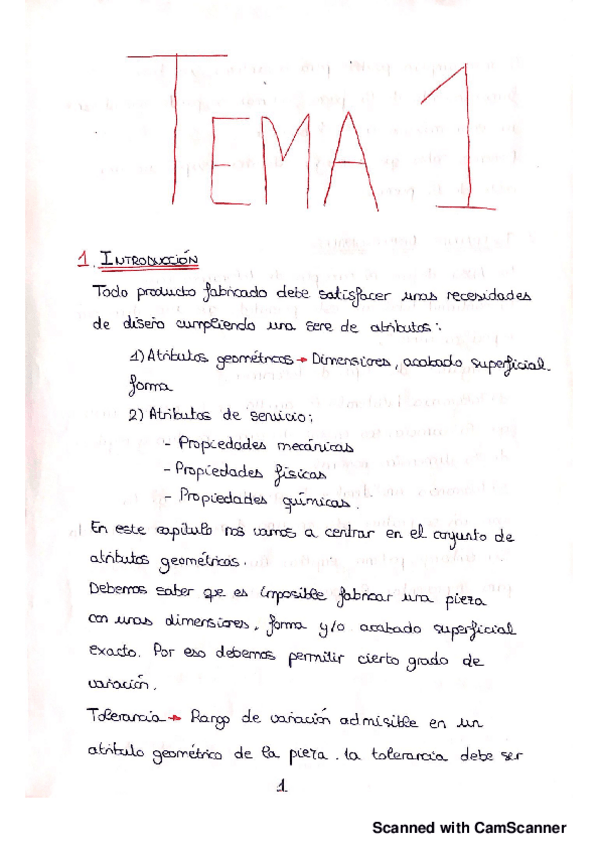 TEMA 1
1. INTRODUCCIÓN
Todo producto fabricado debe satisfacer unas necesidades
de diseño cumpliendo una serie de atributos:
1) Atributos geométricos → Dimensiones, acabado superficial.
forma
2) Atributos de servicio:
- Propiedades mecánicas
- Propiedades físicas
- Propiedades químicas.
En este capítulo nos vamos a centrar en el conjunto de
atributos geométricos.
Debemos saber que es imposible fabricar una pieza
con unas dimensiones, forma y/o acabado superficial
exacto. Por eso debemos permitir cierto grado de
variación.
Tolerancia → Rango de variación admisible en un
atributo geométrico de la pieza. la tolerancia debe ser
1
Scanned with CamScanner